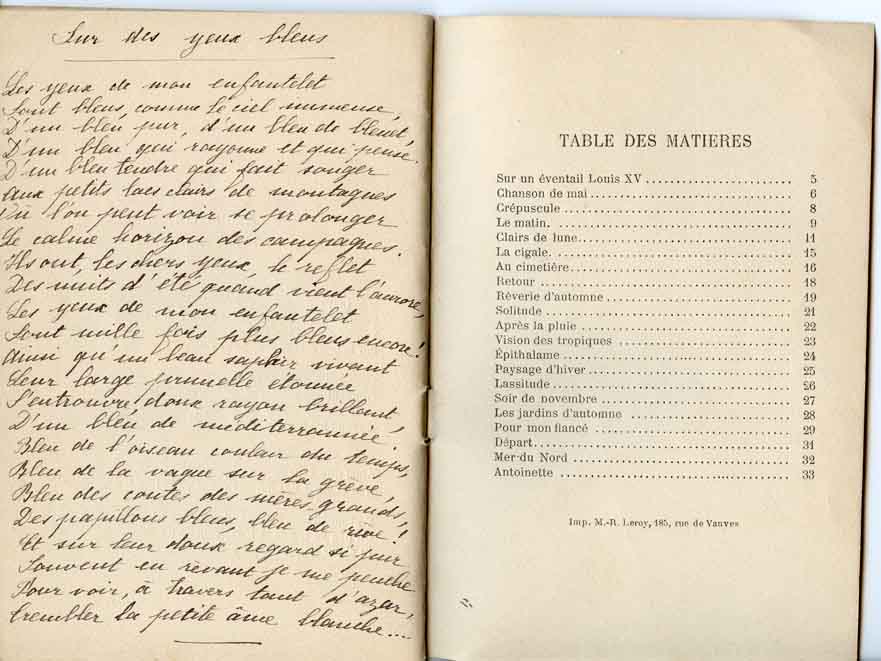 Sur des yeux bleus
Les yeux de mon enfantelet
Sont bleus, comme le ciel immense,
D'un bleu pur, d'un bleu de bleuet,
D'un bleu qui rayonne et qui pense.
D'un bleu tendre qui fait songer
Aux petits lacs clairs de montagnes
Où l'on peut voir se prolonger
Le calme horizon des campagnes.
Ils ont, les chers yeux, le reflet
Des nuits d'été quand vient l'aurore,
Les yeux de mon enfantelet
Sont mille fois plus bleus encore!
Ainsi qu'un beau saphir vivant
Leur large prunelle étonnée
S'entrouvre, doux rayon brillant,
D'un bleu de méditerrannée
Bleu de l'oiseau couleur du temps,
Bleu de la vague sur la grève,
Bleu des contes des mères grands,
Des papillons bleus, bleu de rêve!
Et sur leur doux regard si pur
Souvent en rêvant je me penche
Pour voir, à travers tant d'azur,
trembler la petite âme blanche....
TABLE DES MATIERES
Sur un éventail Louis XV ........................ 5
Chanson de mai ........................ 6
Crépuscule ........................ 8
Le matin. ........................ 9
Clairs de lune ........................ 11
La cigale. ........................ 15
Au cimetière ........................ 16
Retour ........................ 18
Rêverie d'automne ........................ 19
Solitude ........................ 21
Après la pluie ........................ 22
Vision des tropiques ........................ 23
Épithalame ........................ 24
Paysage d'hiver ........................ 25
Lassitude ........................ 26
Soir de novembre ........................ 27
Les jardins d'automne ........................ 28
Pour mon fiancé ........................ 29
Départ ........................ 31
Mer du Nord ........................ 32
Antoinette ........................ 33
Imp. M.-R. Leroy, 185, rue de Vanves